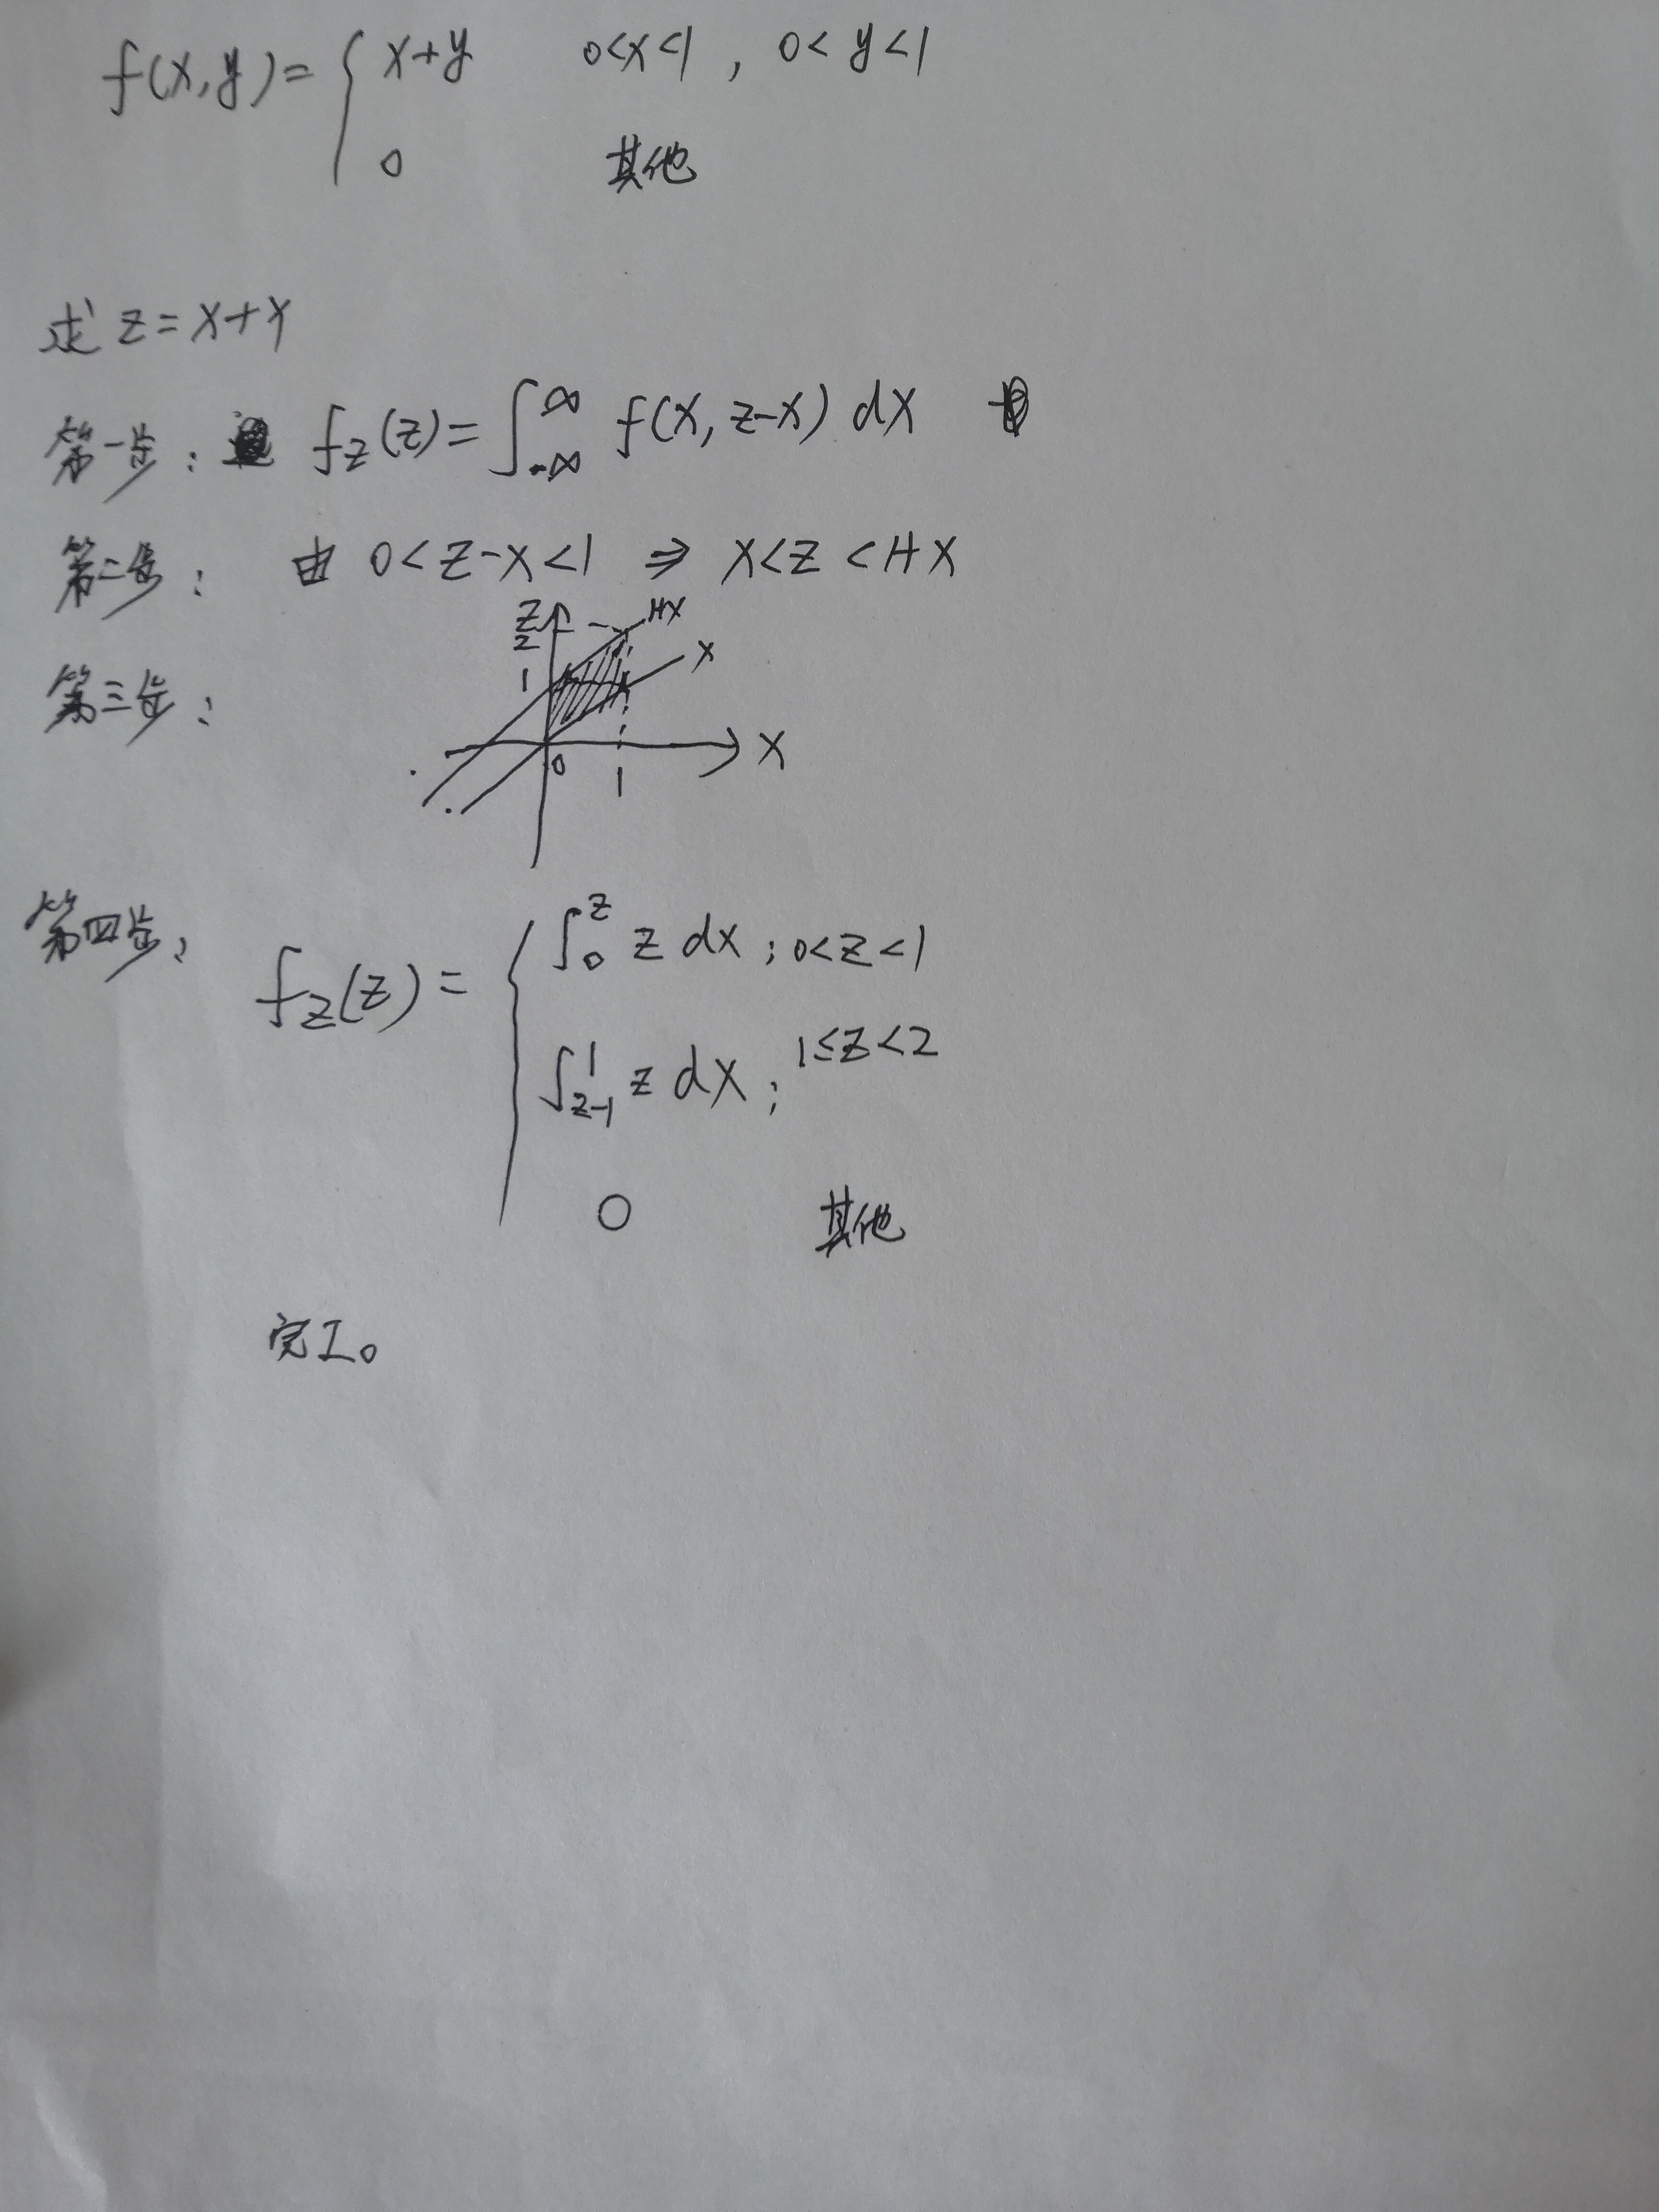 f(x,y)= { x+y 0<x<1 , 0<y<1
0 其他
求 z=X+Y
第一步: f_Z(z)=∫_{-∞}^{∞} f(x, z-x) dx
第二步: 由 0<z-x<1 ⇒ x<z<1+x
第三步:
z 2 1 0 1 x 1+x x
第四步: f_Z(z)= { ∫_0^z z dx ; 0<z<1
∫_{z-1}^1 z dx ; 1≤z<2
0 其他
完工。